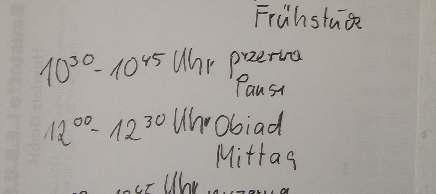 Frühstück
10³⁰ - 10⁴⁵ Uhr przerwa
Pause
12⁰⁰ - 12³⁰ Uhr Obiad
Mittag